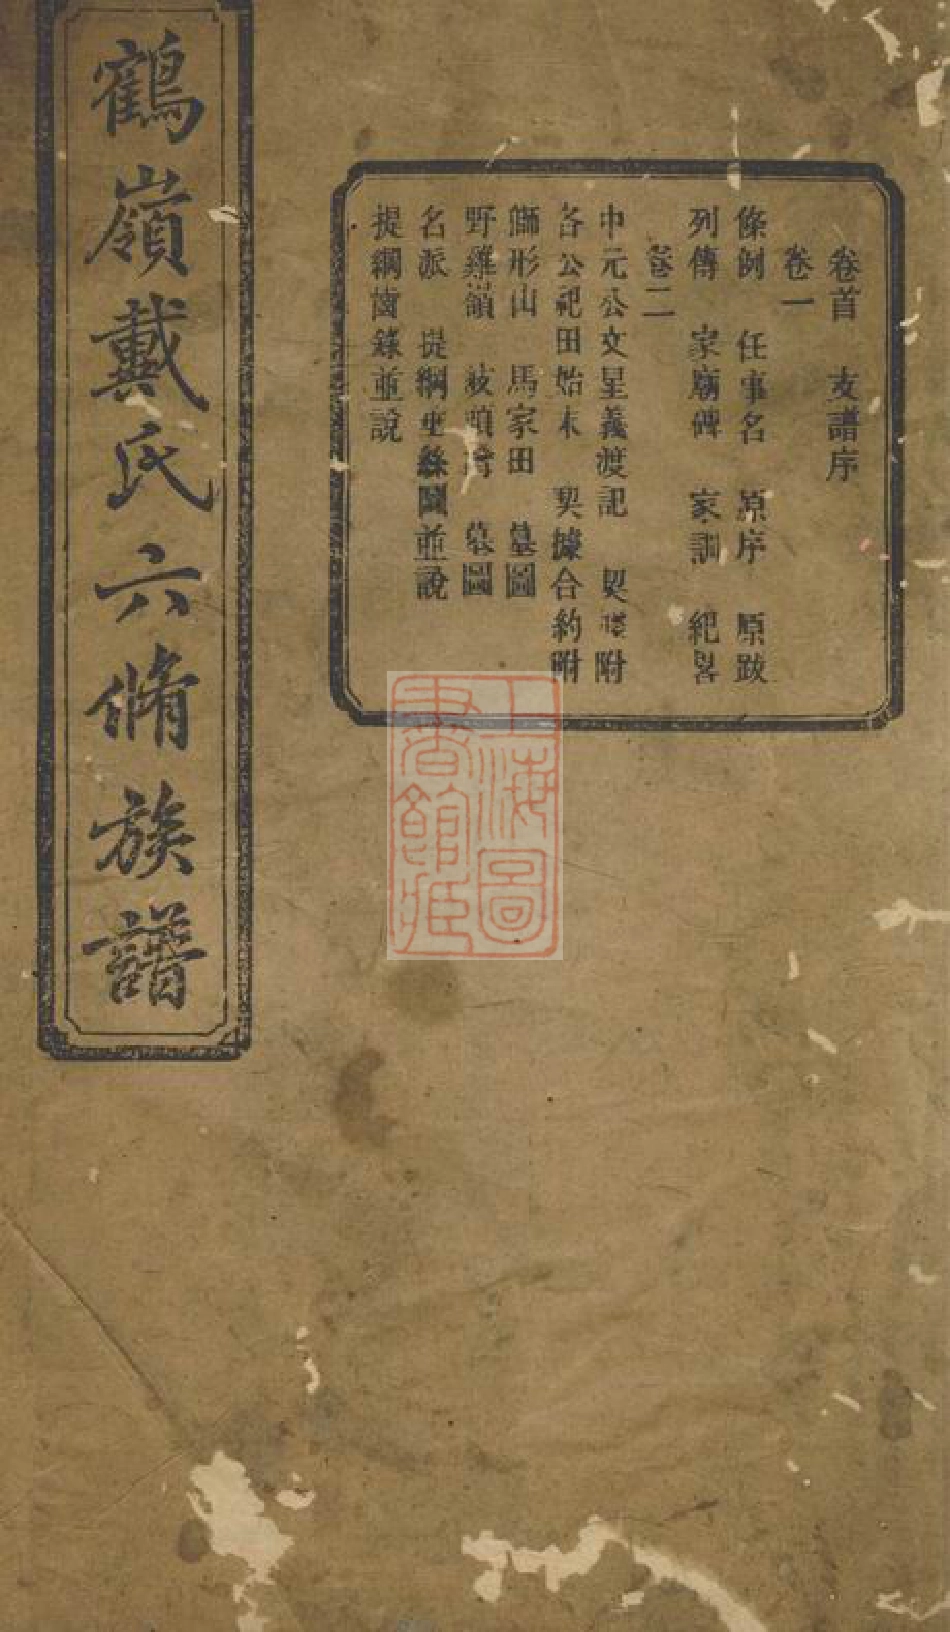 鶴嶺戴氏六脩族譜
卷首 支譜序
卷一
條例 任事名 原序 原跋
列傳 家廟碑 家訓 紀畧
卷二
中元公文星義渡記 契 附
各公祀田始末 契據合約附
獅形山 馬家田 墓圖
野雞嶺 墓圖
名派 提綱垂絲圖並說
提綱齒錄並說
上海圖
書館藏